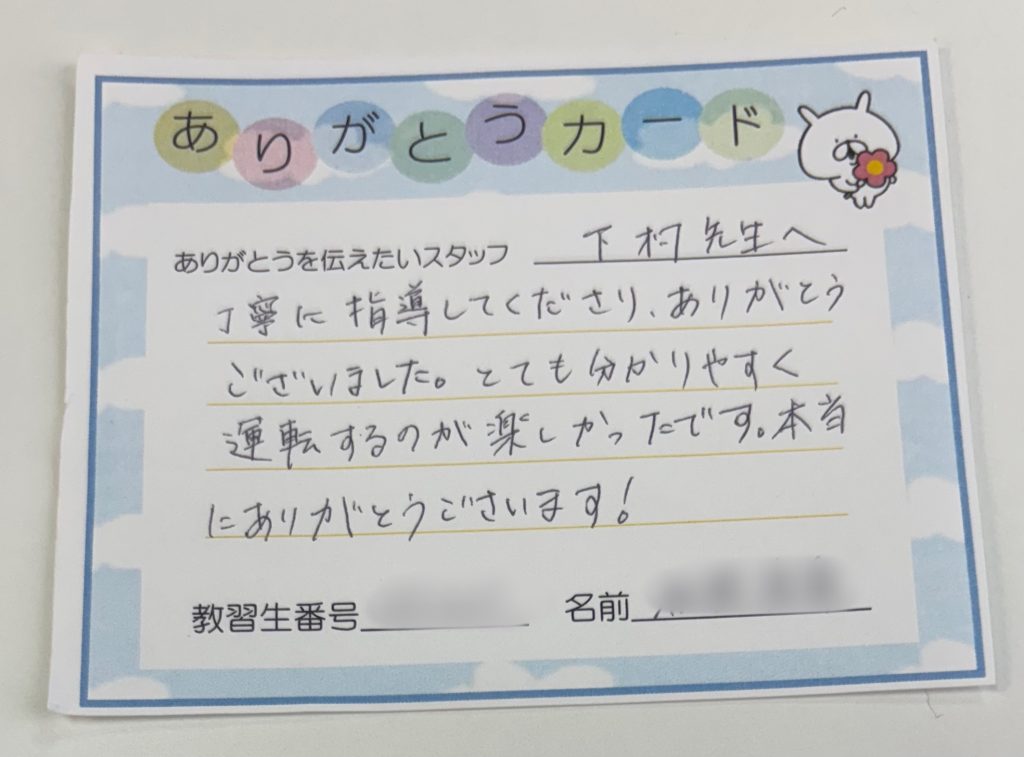 ありがとうカード
ありがとうを伝えたいスタッフ 下村先生へ
丁寧に指導してくださり、ありがとう
ございました。とても分かりやすく
運転するのが楽しかったです。本当
にありがとうございます!
教習生番号
名前